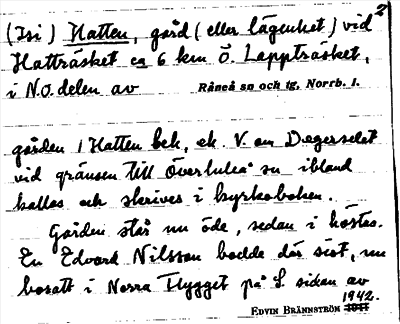 (Isi) Hatten, gård (eller lägenhet) vid 2
Hatträsket ca 6 km Ö. Lappträsket,
i N.O. delen av Råneå sn och tg, Norrb. l.
gården / Hatten bek, ek. V. om Degerselet
vid gränsen till Överluleå sn ibland
kallas och skrives i kyrkoboken.
Gården står nu öde, sedan i höstas.
En Edvard Nilsson bodde där sist, nu
bosatt i Norra Flygget på S. sidan av
EDVIN BRÄNNSTRÖM 1942.